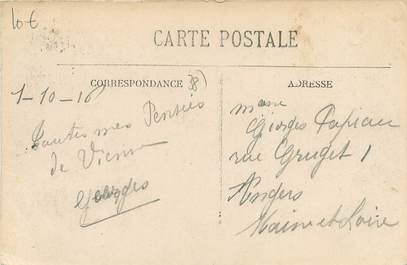 10€
CARTE POSTALE
CORRESPONDANCE
38)
1-10-16
Toutes mes Pensées
de Vienne
Georges
ADRESSE
Georges
rue Gruget 1
Angers
Maine et Loire